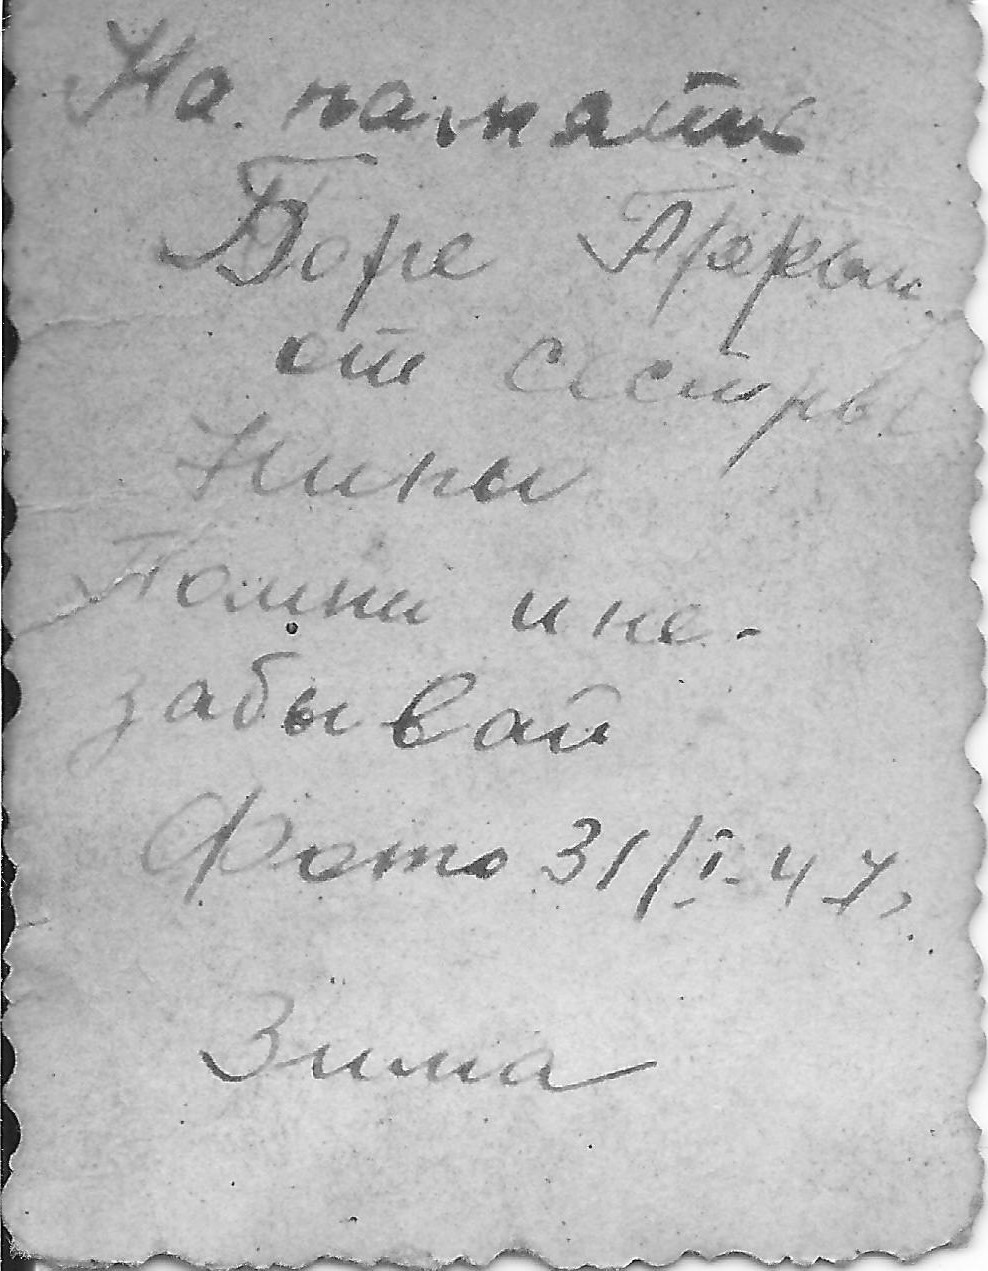 На память
Боре
от сестры
Нины
Помни и не-
забывай
Фото 31/I-47г.
Зима